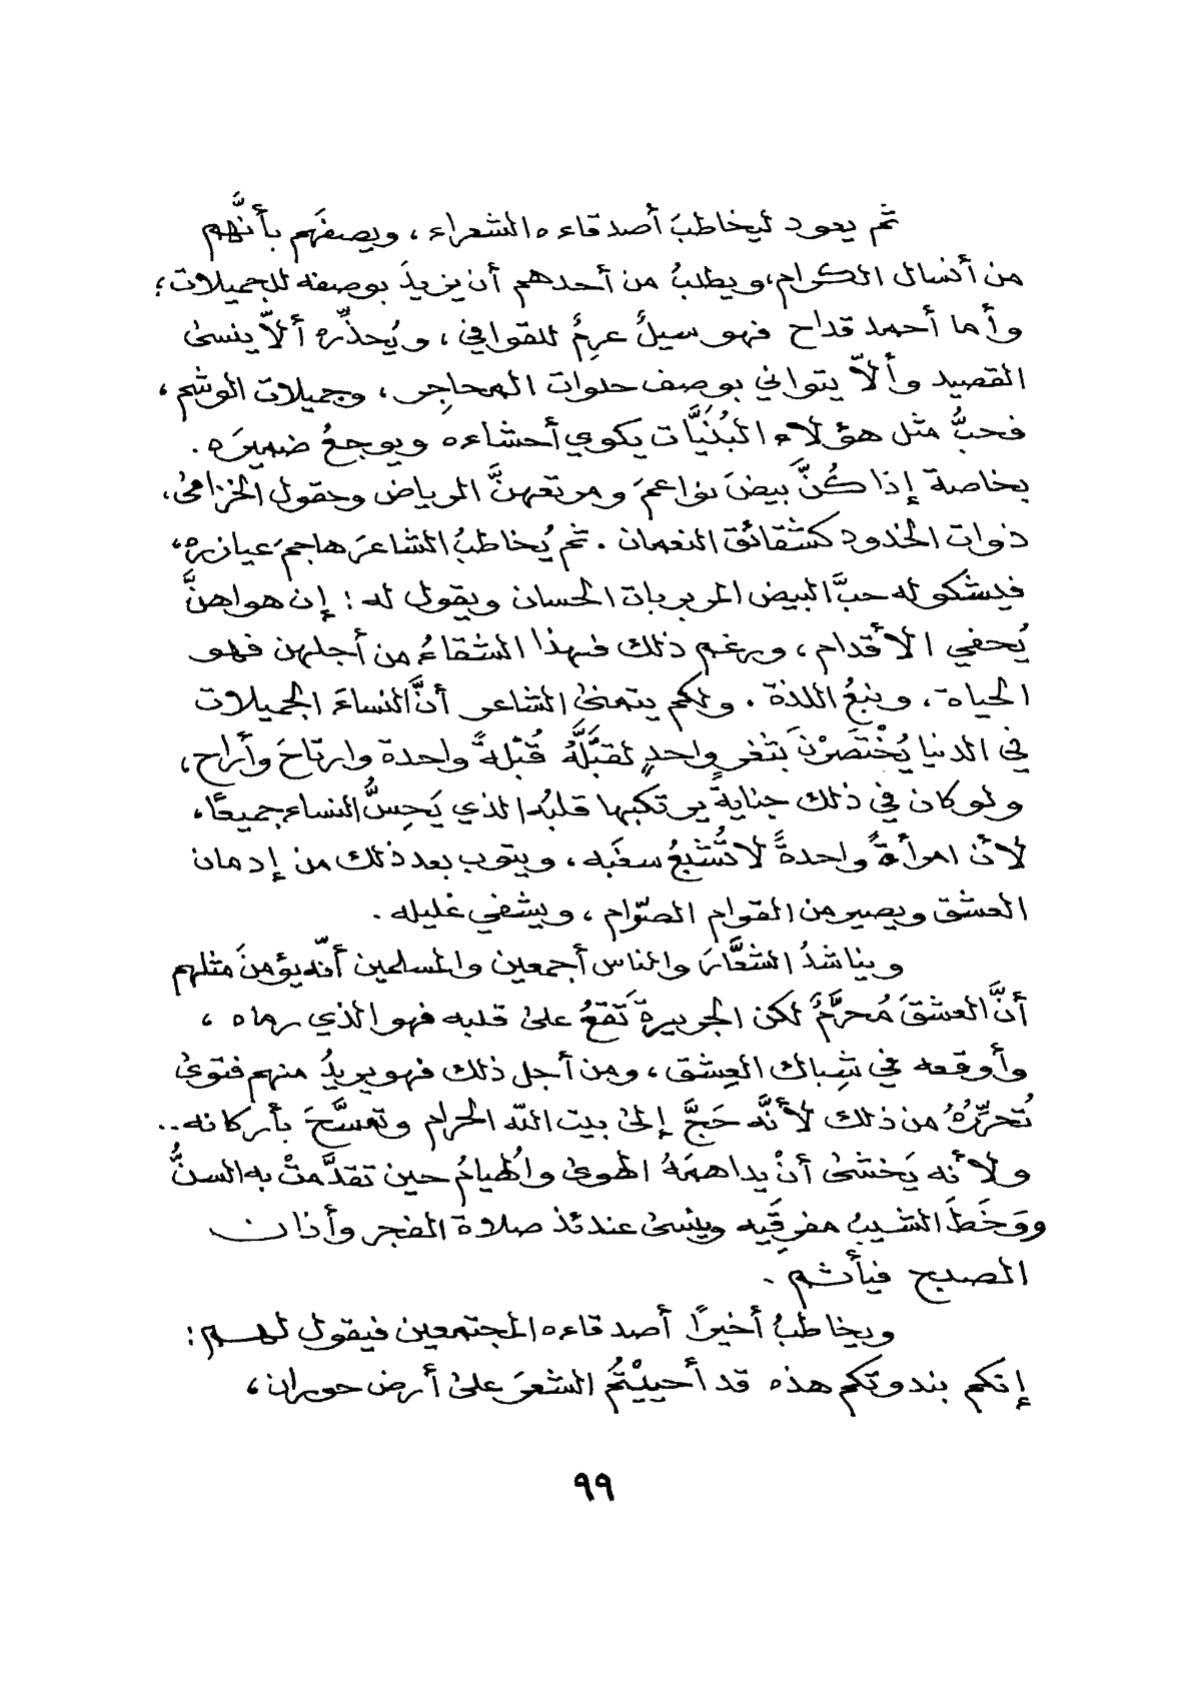 ثم يعود ليخاطبَ أصدقاءه الشعراء ، ويصفَهم بأنَّهم
من أنسال الكرام، ويطلبُ من أحدهم أن يزيدَ بوصفه للجميلات ؛
وأما أحمد قداح فهو سيلٌ عرِمٌ للقوافي ، ويُحذِّره ألاّ ينسىٰ
القصيد وألاّ يتوانىٰ بوصف حلوات المحاجِر ، وجميلات الوشم ،
فحبُّ مثل هؤلاء البُنَيَّات يكوي أحشاءه ويوجعُ ضميرَه .
بخاصة إذا كُنَّ بيضَ نواعمَ ومرتعهنَّ الرياض وحقول الخزامىٰ ،
ذوات الخدود كشقائق النعمان . ثم يُخاطبُ الشاعرَ هاجمَ عيازره ،
فيشكو له حبَّ البيض الربربات الحسان ويقول له : إن هواهنَّ
يُحفي الأقدام ، ورغم ذلك فهذا الشقاءُ من أجلهن فهو
الحياة ، ونبعُ اللذة . ولكم يتمنىٰ الشاعر أنَّ النساءَ الجميلات
في الدنيا يُخْتَصَرْنَ بثغرٍ واحدٍ لقبَّلَهُ قُبْلةً واحدة وارتاحَ وأراح ،
ولو كان في ذلك جنايةً يرتكبها قلبُه الذي يَحِسُّ النساء جميعًا ،
لأن امرأةً واحدةً لا تُشْبعُ سغَبه ، ويتوب بعد ذلك من إدمان
العشق ويصير من القوام الصوّام ، ويشفي غليله .
ويناشدُ الشعَّارَ والناس أجمعين والمسلمين أنّه يؤمنَ مثلهم
أنَّ العشقَ مُحرَّمٌ لكن الجريرةَ تَقعُ علىٰ قلبه فهو الذي رماه ،
وأوقعه في شِباك العِشق ، ومن أجل ذلك فهو يريدُ منهم فتوىٰ
تُحرِّرُهُ من ذلك لأنَّه حَجَّ إلىٰ بيت الله الحرام وتمسَّحَ بأركانه ..
ولأنه يَخشىٰ أنْ يداهمَهُ الهوىٰ والهُيامُ حين تقدَّمتْ به السنُّ
ووَخَطَ الشيبُ مفرقَيه وينسىٰ عندئذ صلاة الفجر وأذان
الصبح فيأثم .
ويخاطبُ أخيرًا أصدقاءه المجتمعين فيقول لهم :
إنكم بندوتكم هذه قد أحييْتُمُ الشعرَ علىٰ أرض حوران ،
٩٩